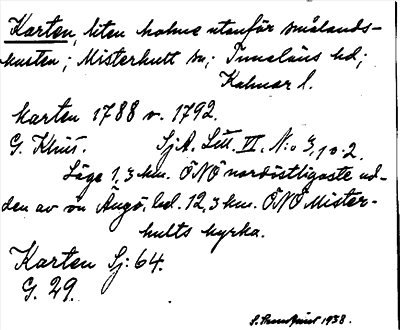 Karten, liten holme utanför smålands-
kusten; Misterhult sn; Tunaläns hd;
Kalmar l.
Karten 1788 o. 1792.
G. Klint. SjA. Litt. VI, N:o 3, 1 o. 2.
Läge 1,3 km. ÖNÖ nordöstligaste ud-
den av ön Ängö, bel. 12,3 km. ÖNÖ Mister-
hults kyrka.
Karten Sj: 64.
G. 29.
1938.